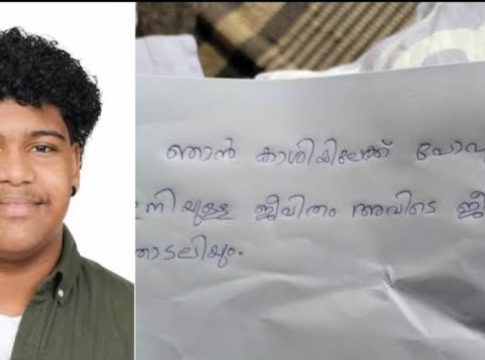 ഞാൻ കാശിയിലേക്ക് പോവു
ഇനിയുള്ള ജീവിതം അവിടെ ജീ